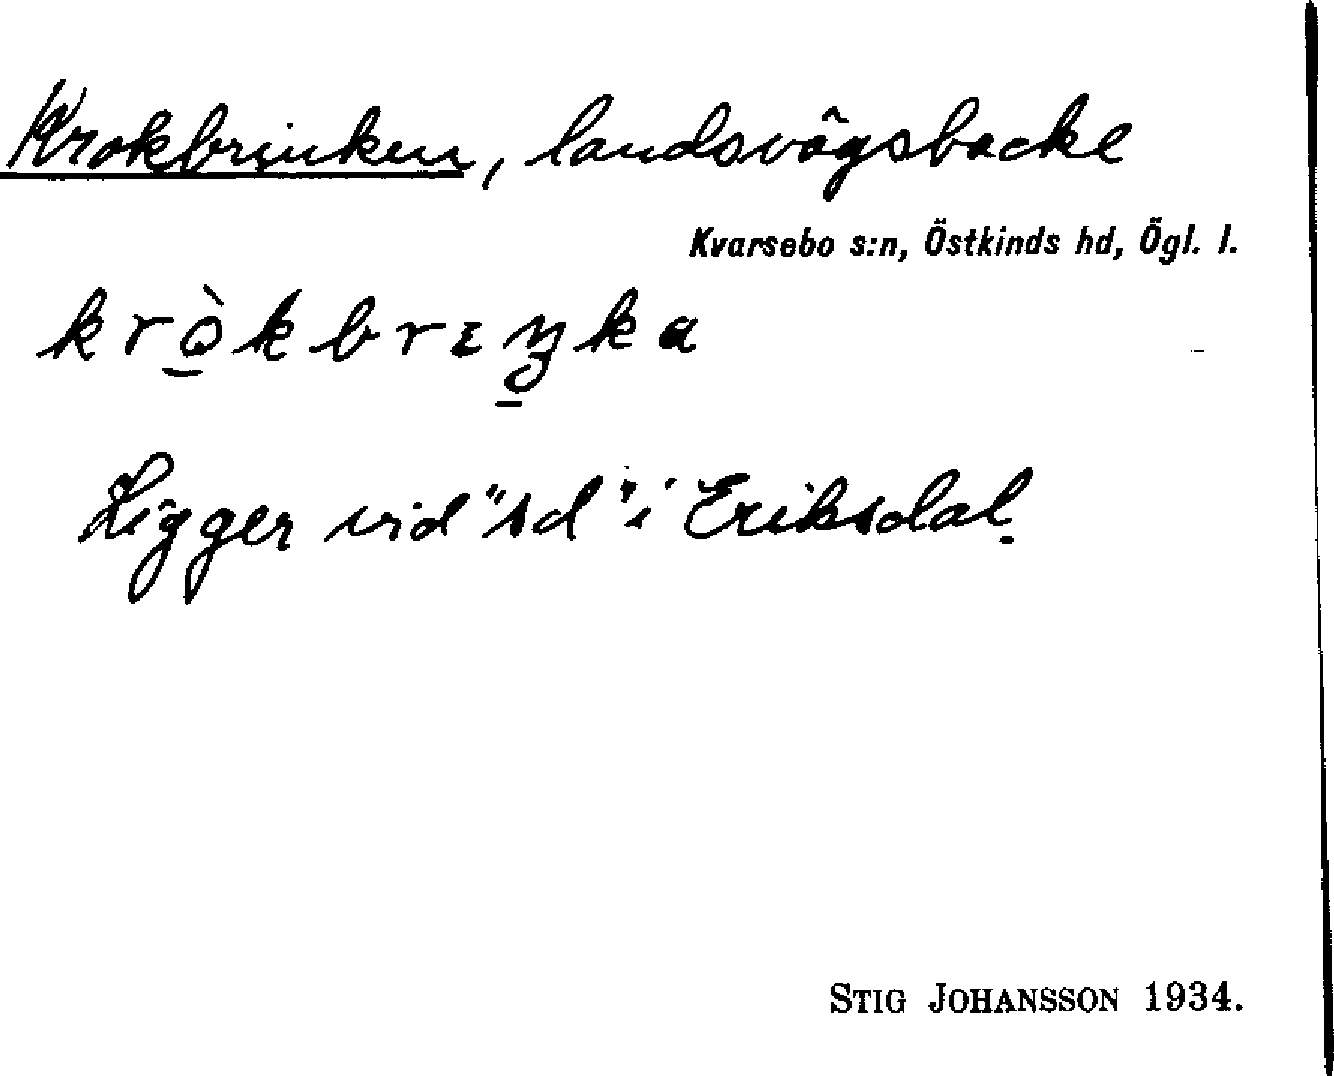 Krokbrinken, landsvägsbacke
Kvarsebo s:n, Östkinds hd, Ögl. l.
krò̱kbrɪŋ̱ka
Ligger vid "sd" i Eriksdal.
STIG JOHANSSON 1934.